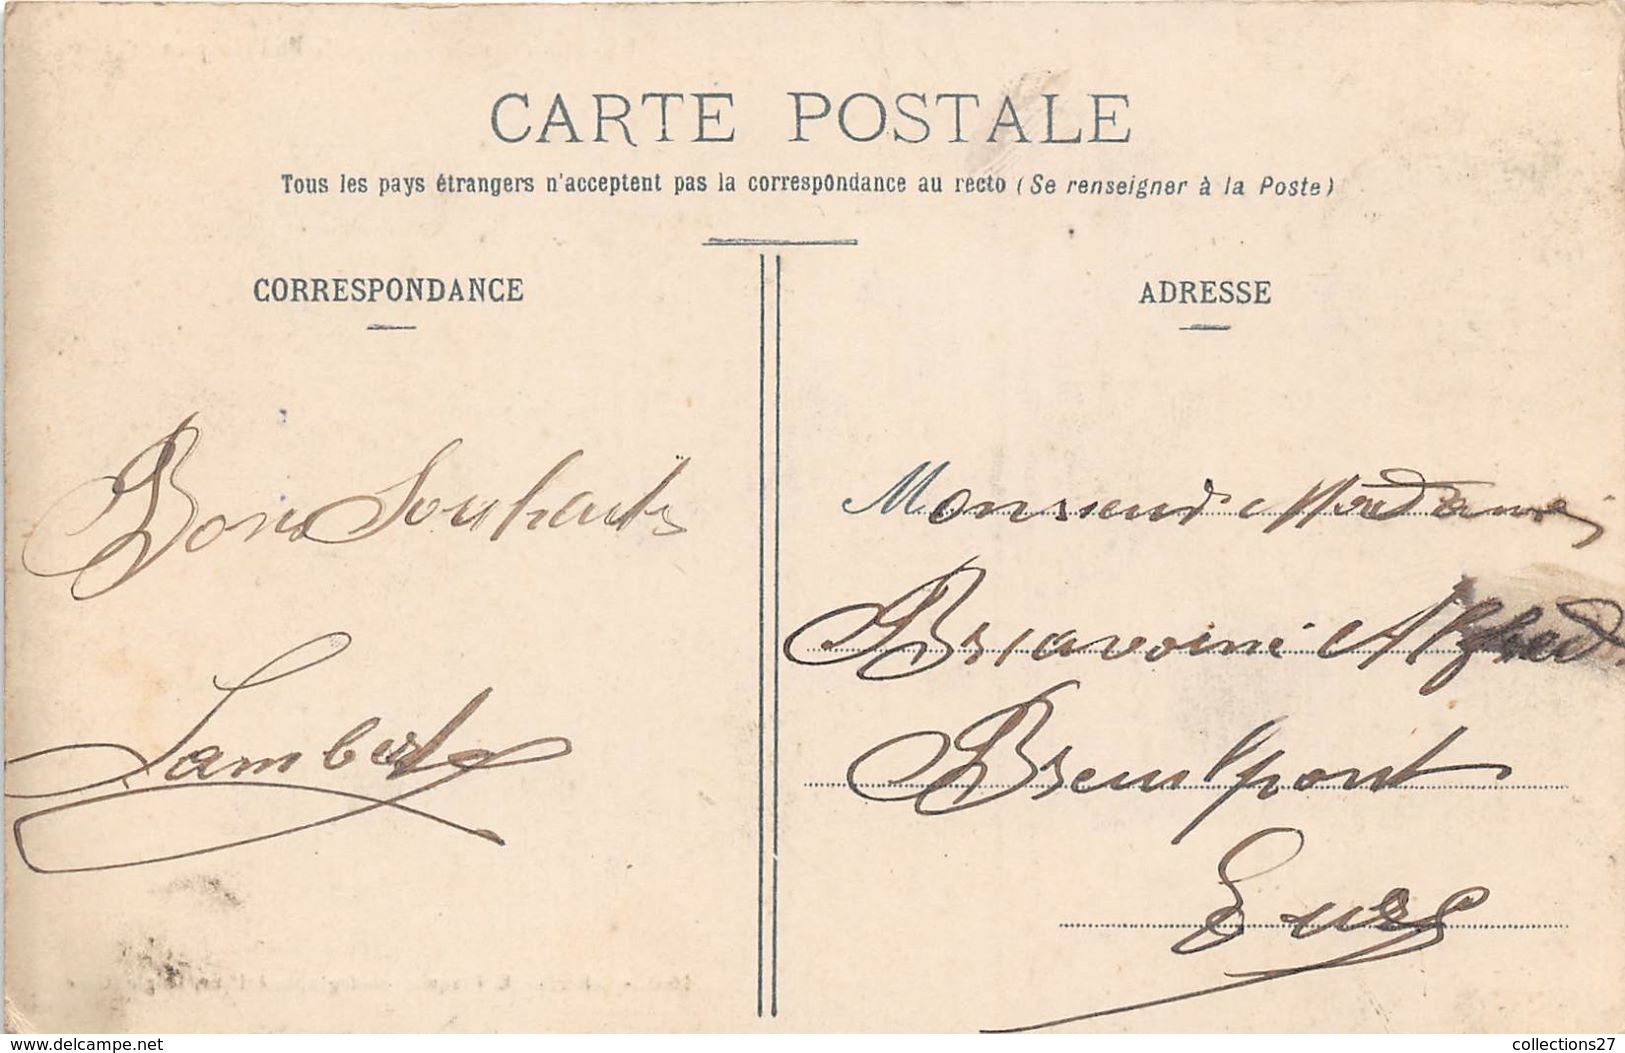 CARTE POSTALE
Tous les pays étrangers n'acceptent pas la correspondance au recto (Se renseigner à la Poste)
CORRESPONDANCE
Bons Souhaits
Lambert
ADRESSE
Monsieur Madame
Briavoine Alfred
Breuilpont
Eure
www.delcampe.net
collections27